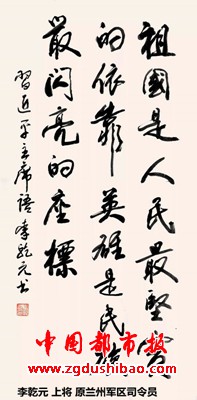 祖國是人民最堅實
的依靠英雄是民族
最闪亮的座標
習近平主席語 李乾元书
中国都市报
www.zgdushibao.com
李乾元 上将 原兰州军区司令员